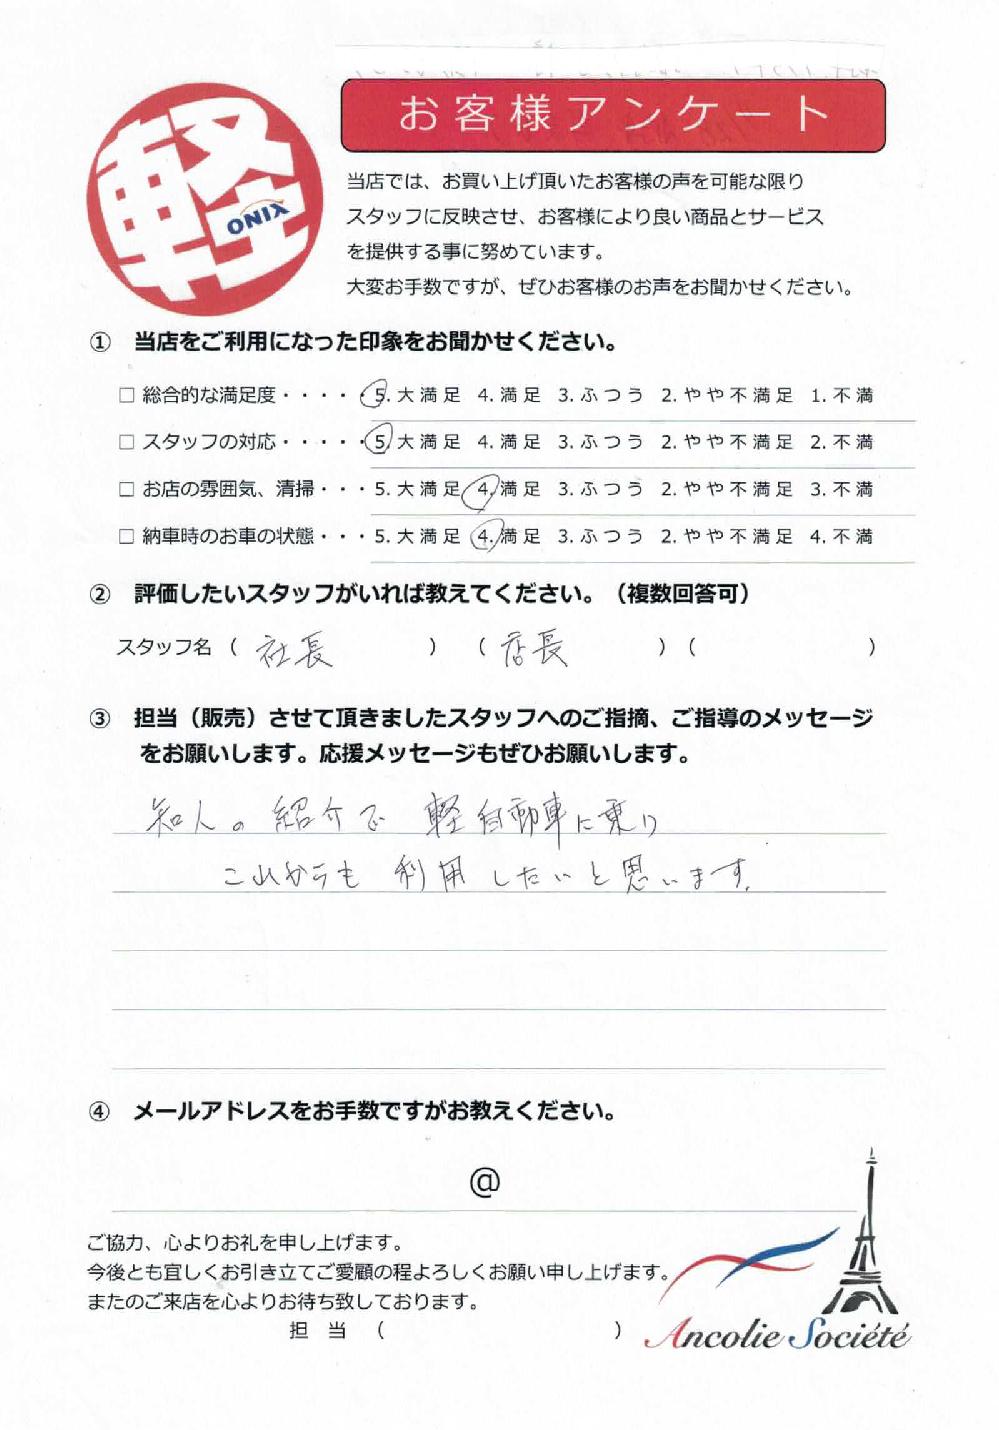 お客様アンケート
軽
ONIX
当店では、お買い上げ頂いたお客様の声を可能な限り
スタッフに反映させ、お客様により良い商品とサービス
を提供する事に努めています。
大変お手数ですが、ぜひお客様のお声をお聞かせください。
① 当店をご利用になった印象をお聞かせください。
□ 総合的な満足度・・・・・5.大満足 4.満足 3.ふつう 2.やや不満足 1.不満
□ スタッフの対応・・・・・5.大満足 4.満足 3.ふつう 2.やや不満足 2.不満
□ お店の雰囲気、清掃・・・5.大満足 4.満足 3.ふつう 2.やや不満足 3.不満
□ 納車時のお車の状態・・・5.大満足 4.満足 3.ふつう 2.やや不満足 4.不満
② 評価したいスタッフがいれば教えてください。（複数回答可）
スタッフ名（ 社長 ）（ 店長 ）（ ）
③ 担当（販売）させて頂きましたスタッフへのご指摘、ご指導のメッセージ
をお願いします。応援メッセージもぜひお願いします。
知人の紹介で 軽自動車に乗り
これからも 利用したいと思います。
④ メールアドレスをお手数ですがお教えください。
@
ご協力、心よりお礼を申し上げます。
今後とも宜しくお引き立てご愛顧の程よろしくお願い申し上げます。
またのご来店を心よりお待ち致しております。
担 当 （ ）
Ancolie Société